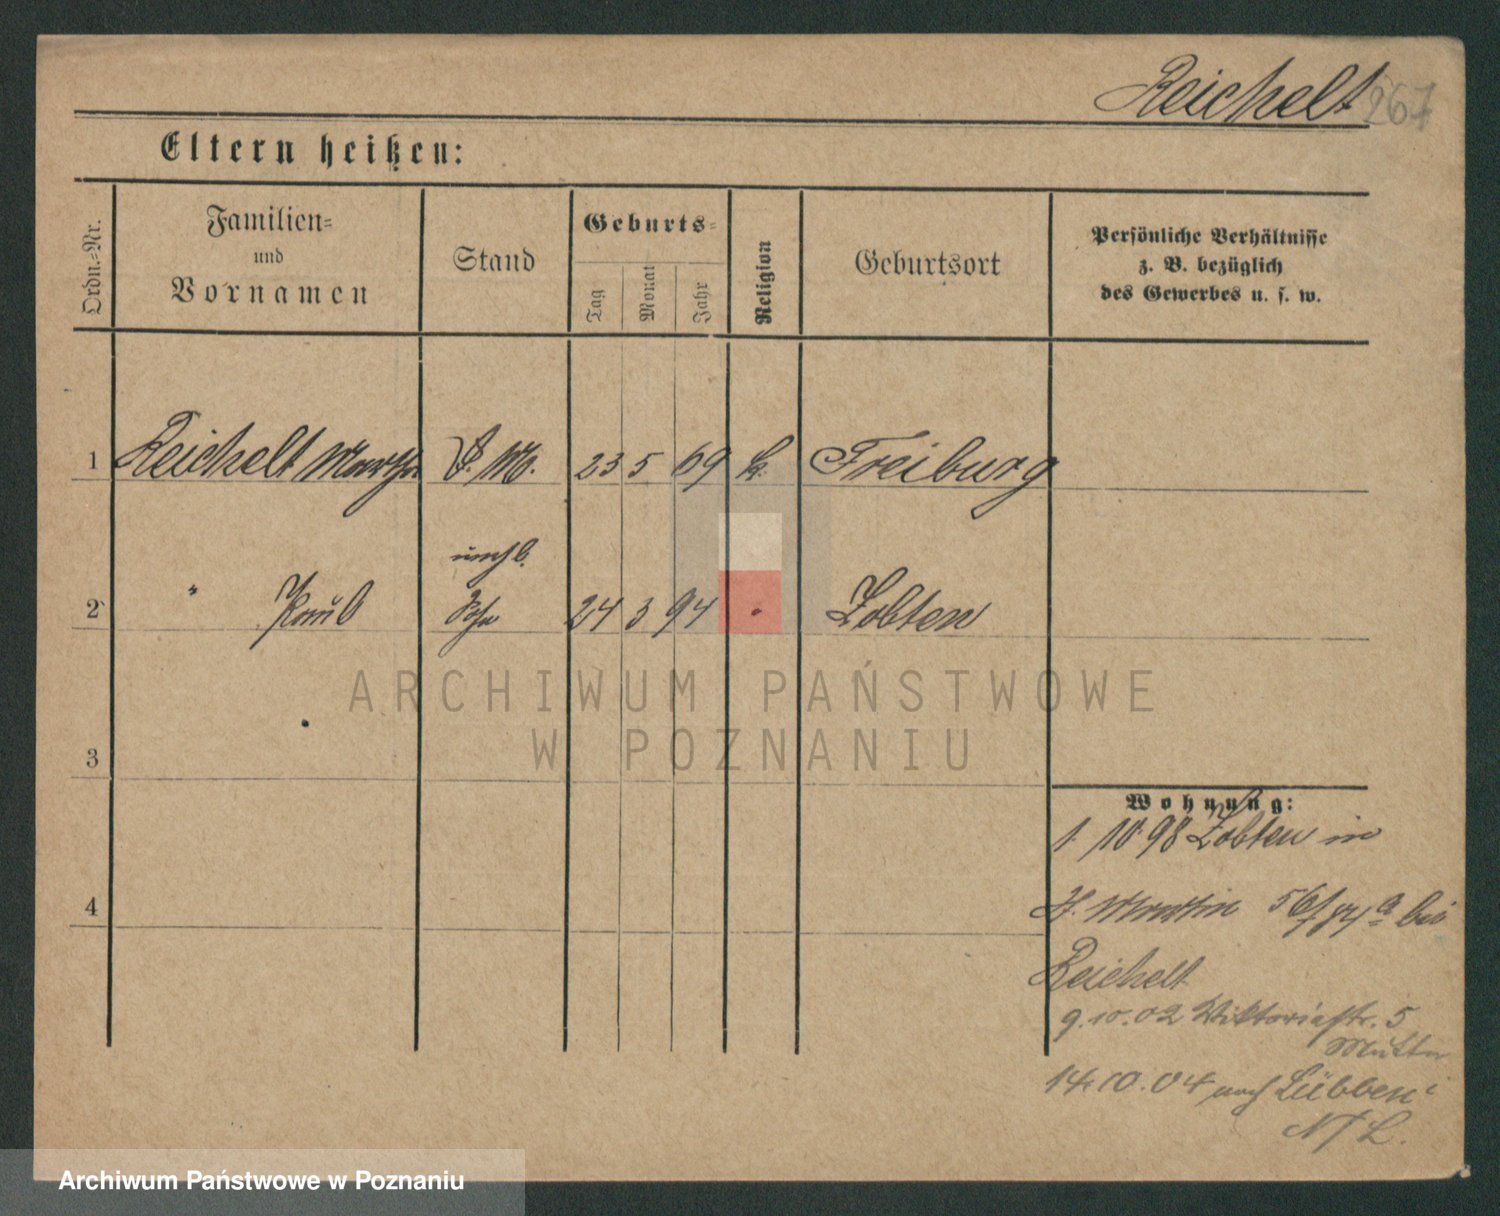 Reichelt 267
Eltern heißen:
Ordn.-Nr.
Familien-
und
Vornamen
Stand
Geburts-
Tag
Monat
Jahr
Religion
Geburtsort
Persönliche Verhältnisse
z. B. bezüglich
des Gewerbes u. s. w.
1 Reichelt Martha 23 5 69 k. Freiburg
unehl.
2 " Paul Sohn 24 3 94 " Zobten
ARCHIWUM PAŃSTWOWE
W POZNANIU
3
Wohnung:
1. 10 98 Zobten in
4
St. Martin 56/ bei
Reichelt
9.10.02 Viktoriastr. 5
Mutter
14.10.04 nach Lübben i
N L.
Archiwum Państwowe w Poznaniu